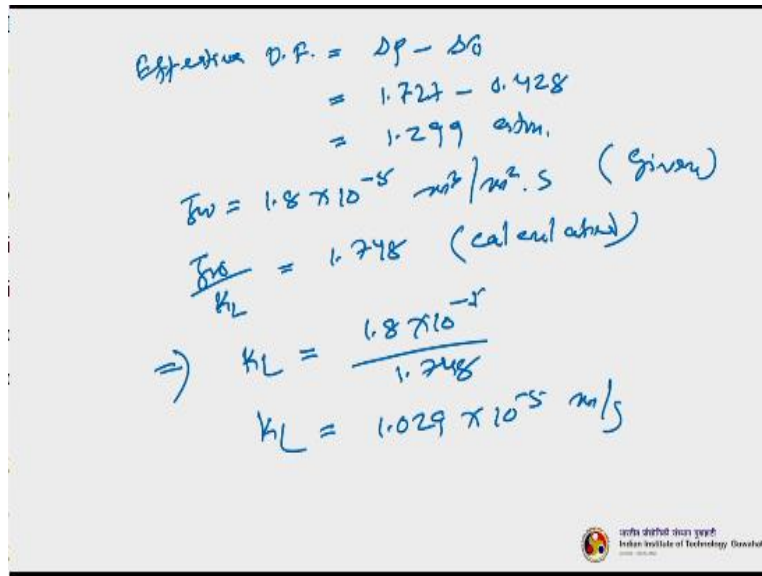 Effective D.F. = Δp - Δσ
= 1.727 - 0.428
= 1.299 atm.
Jw = 1.8 × 10⁻⁵ m³/m².s (Given)
Jw/KL = 1.748 (calculated)
⇒ KL = 1.8 × 10⁻⁵ / 1.748
KL = 1.029 × 10⁻⁵ m/s
भारतीय प्रौद्योगिकी संस्थान गुवाहाटी
Indian Institute of Technology Guwahati